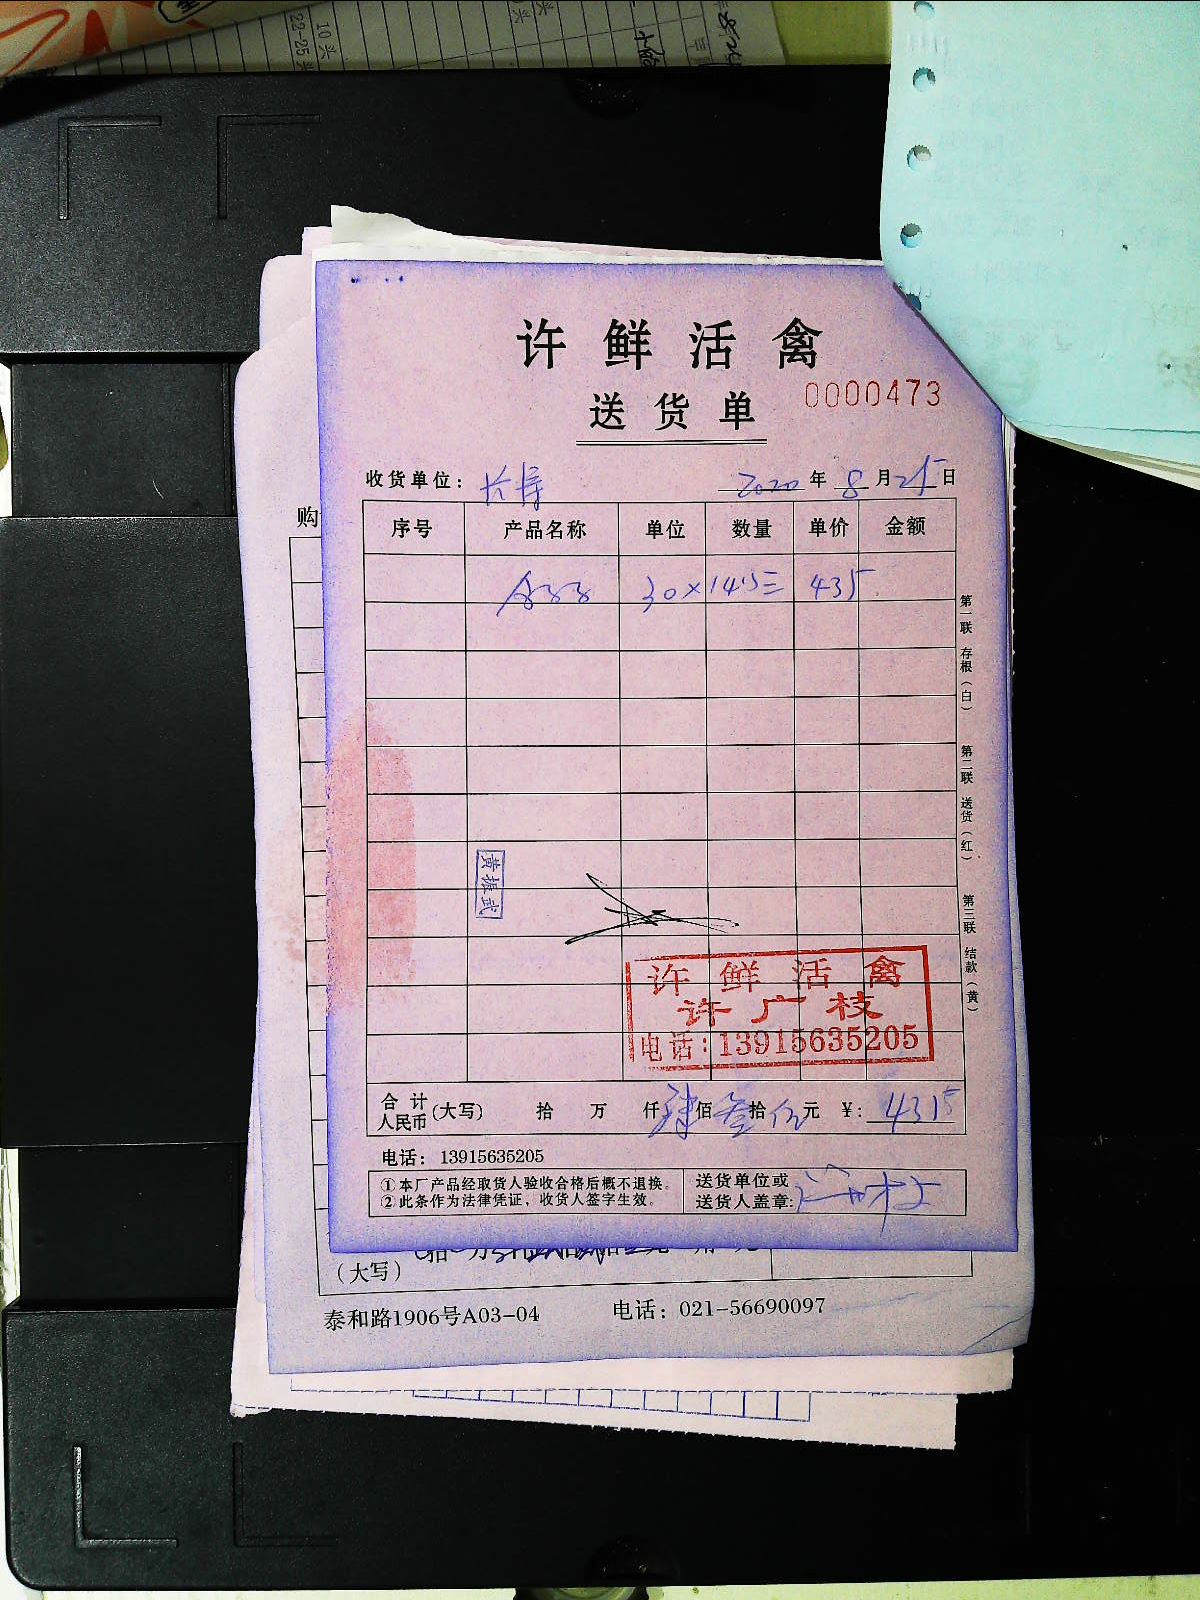 10头
22-25头
头
头
许鲜活禽
送货单
0000473
收货单位：长寿 2020年8月25日
购
序号 产品名称 单位 数量 单价 金额
30×14.5= 435
第一联 存根（白）
第二联 送货（红）
第三联 结款（黄）
黄振武
许鲜活禽
许广枝
电话：13915635205
合计人民币（大写） 拾 万 仟 肆佰叁拾伍元 ￥：435
电话：13915635205
①本厂产品经取货人验收合格后概不退换。
②此条作为法律凭证，收货人签字生效。
送货单位或
送货人盖章：
（大写）
泰和路1906号A03-04 电话：021-56690097